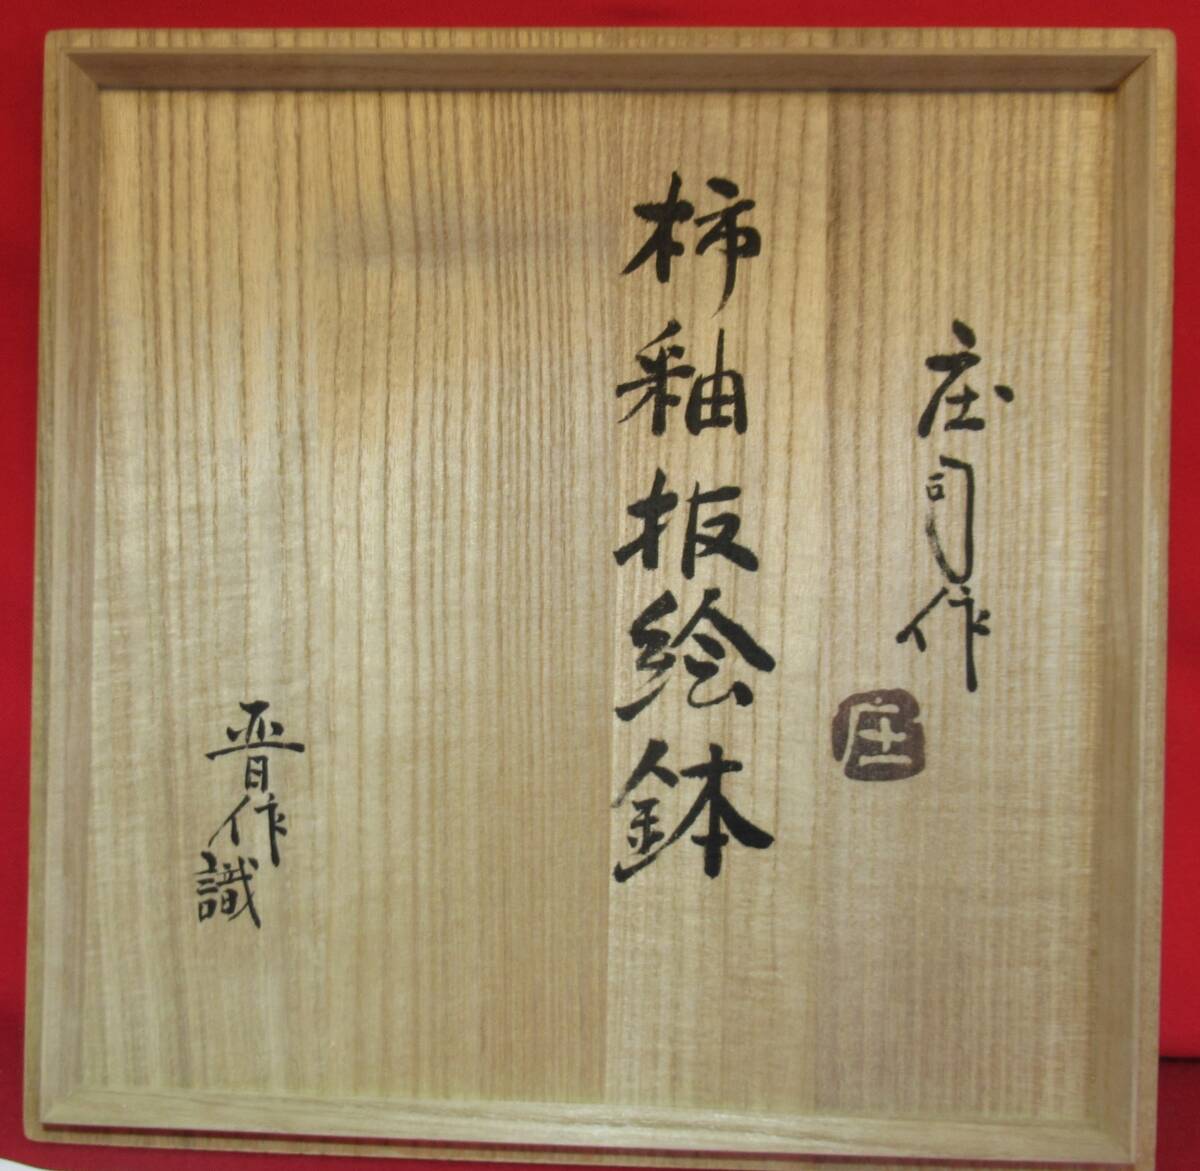 庄司作
庄
柿釉抜絵鉢
晋作識